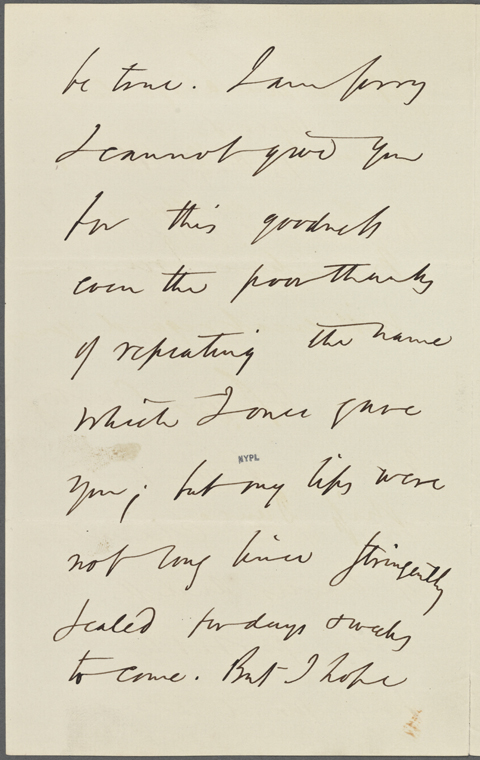 be true. I am sorry
I cannot give you
for this goodness
even the poor thanks
of repeating the name
which I once gave
you; but my lips were
NYPL
not long since stringently
sealed for days & weeks
to come. But I hope